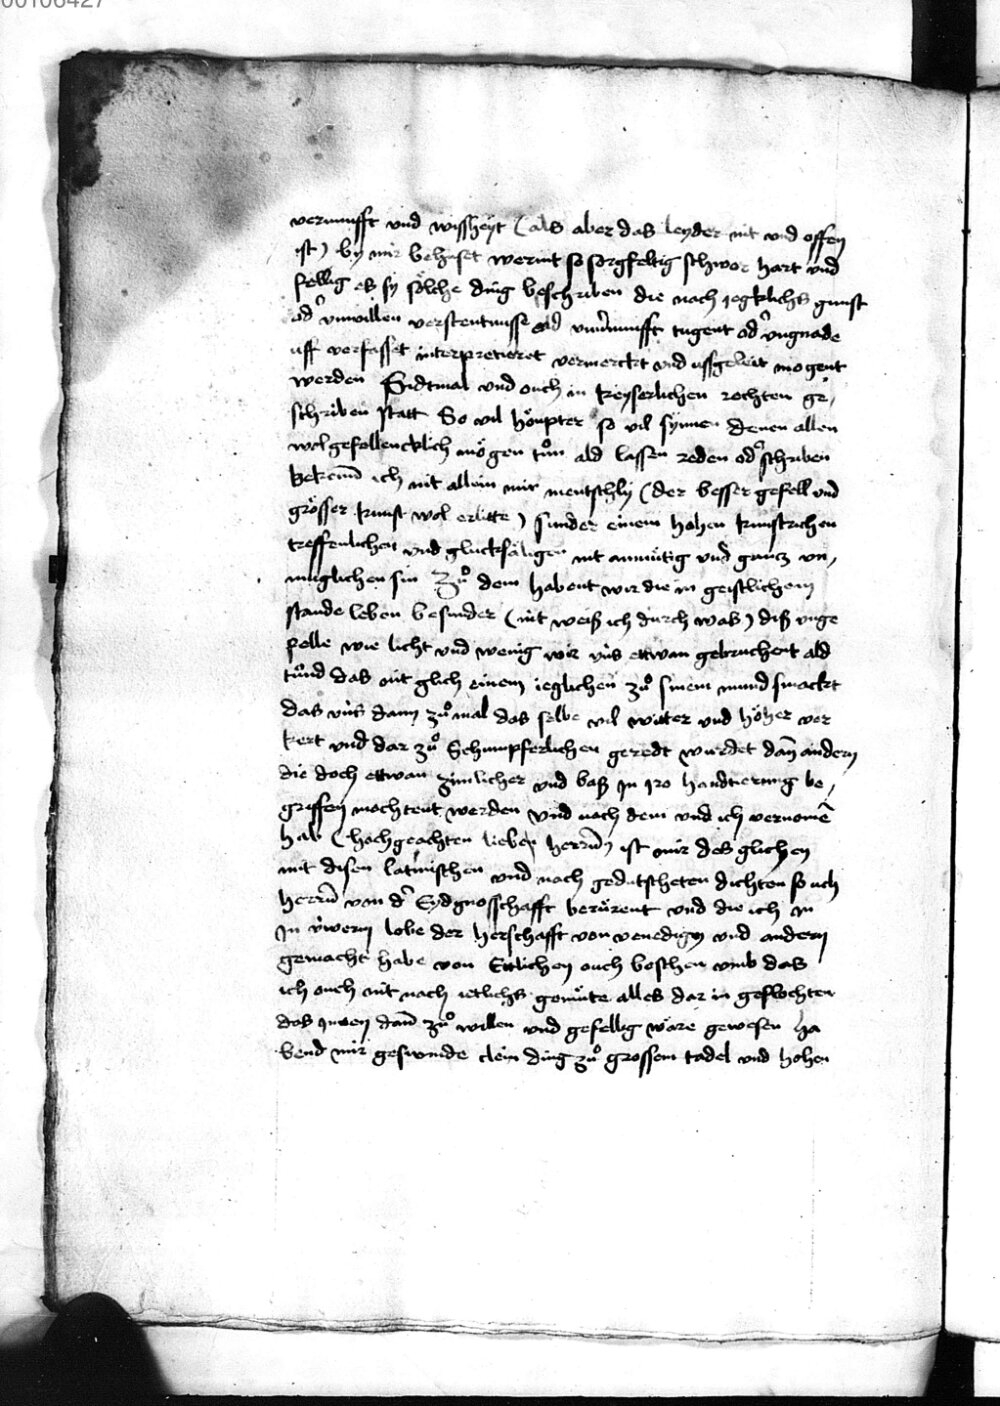 00106427
vernunfft vnd wyssheyt (als aber das leyder nit vnd offen
ist) by mir behuset werint so sorgfeltig schwer hart vnd
fellig es sy sölche ding beschriben die nach yegklichs gunst
od' vnwillen verstentnusse od' vnu'nunfft tugent od' vngnade
uff verfasset interpretieret vermerckt vnd ussgeleit mogent
werden Sidtmal vnd ouch in keyserlichen rechten ge,
schriben statt So vil höupter so vil synnen denen allen
wolgefellencklich mögen tůn ald lassen reden od' schriben
bekenn̄ ich nit allein mir mentschly (der besser gefell vnd
grösser kunst wol erlitte) sunder einem hohen kunstrichen
treffenlichen vnd glückseligen nit anmütig vnd gantz vn,
müglichen sin Zů dem habent wir die in geistlichem
stande leben besunder (nit weiß ich durch was) diß vnge
felle wie licht vnd wenig wir vns ettwan gebruchent ald
tůnd das nit glich einem ieglichen zů sinem mund smackt
das vns dann zů mal das selbe vil witter vnd höher ver
kert vnd dar zů Schimpferlichen geredt wurdet dan̄ andern
die doch ettwan zimlicher vnd baß jn jro handtierung be,
griffen mochtent werden Vnd nach dem vnd ich vernomē
hab (hochgeachten lieben herrn̄) ist mir des glichen
mit disen latinischen vnd nach gedütscheten dichten so üch
herrn̄ von d' Eydgnosschafft berürent vnd die ich jn
jn üwerm lobe der herschafft von venedigen vnd andern
gemacht habe von Ettlichen ouch beschen vmb das
ich ouch nit nach ietlichs gemüte alles dar in geflochten
das jnnen dan̄ zů willen vnd gefellig wäre gewesen ha
bend mir geswinde clein ding zů grossem tadel vnd hohen